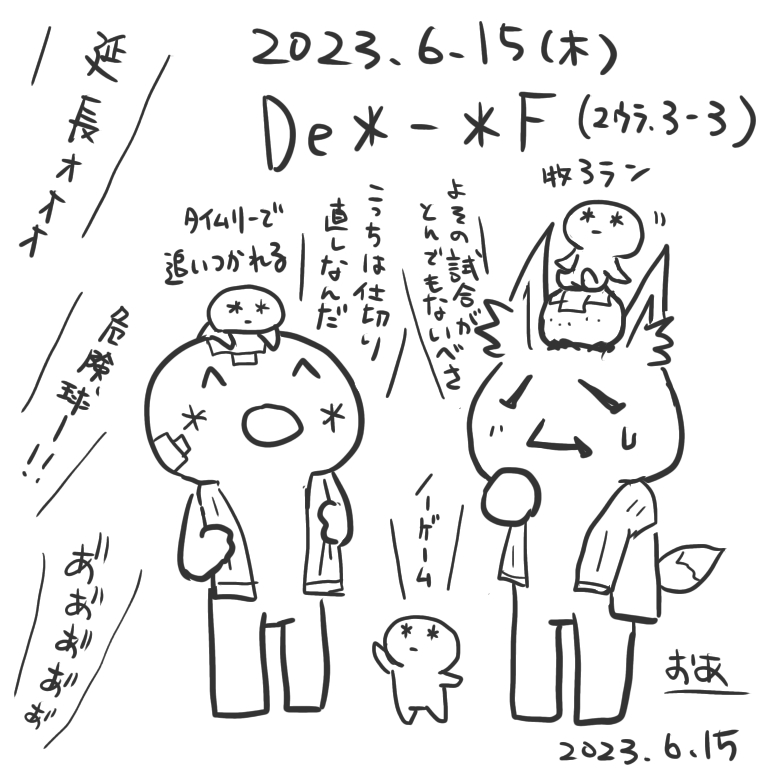 2023.6.15(木)
De*-*F(2ウラ.3-3)
延長オオオ
牧3ラン
タイムリーで
追いつかれる
こっちは仕切り
直しなんだ
よその試合が
とんでもないべさ
危険球ー!!
ノーゲーム
あ゛あ゛あ゛あ゛あ゛
おあ
2023.6.15